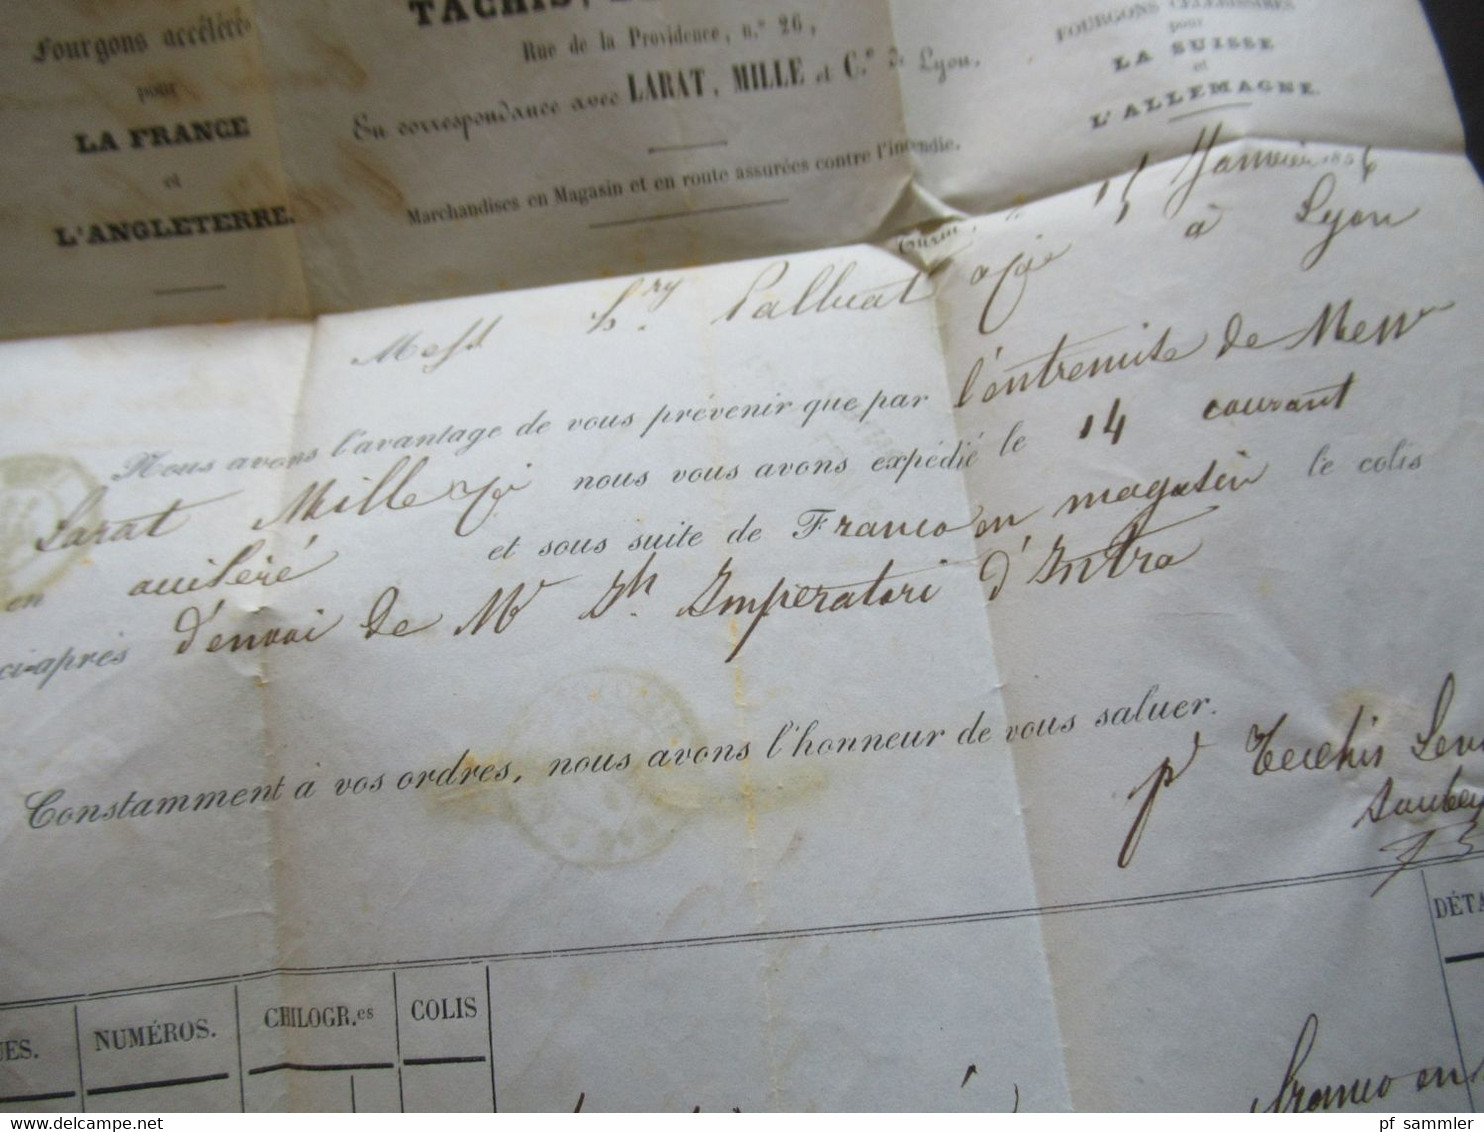 Fourgons accélérés
pour
LA FRANCE
et
L'ANGLETERRE.
TACHIS,
Rue de la Providence, n.° 26,
En correspondance avec LARAT, MILLE et C.e de Lyon.
Marchandises en Magasin et en route assurées contre l'incendie.
FOURGONS CÉLÉRISSIMES
pour
LA SUISSE
et
L'ALLEMAGNE.
Turin, le 15 Janvier 1856
à Lyon
Nous avons l'avantage de vous prévenir que par l'entremise de Mess
Larat Mille nous vous avons expédié le 14 courant
en accéléré et sous suite de Franco en magasin le colis
ci-après d'envoi de Mr Imperatori d'Intra
Constamment à vos ordres, nous avons l'honneur de vous saluer.
pr
UES. NUMÉROS. CHILOGR.es COLIS DÉTA
franco en
pf sammler